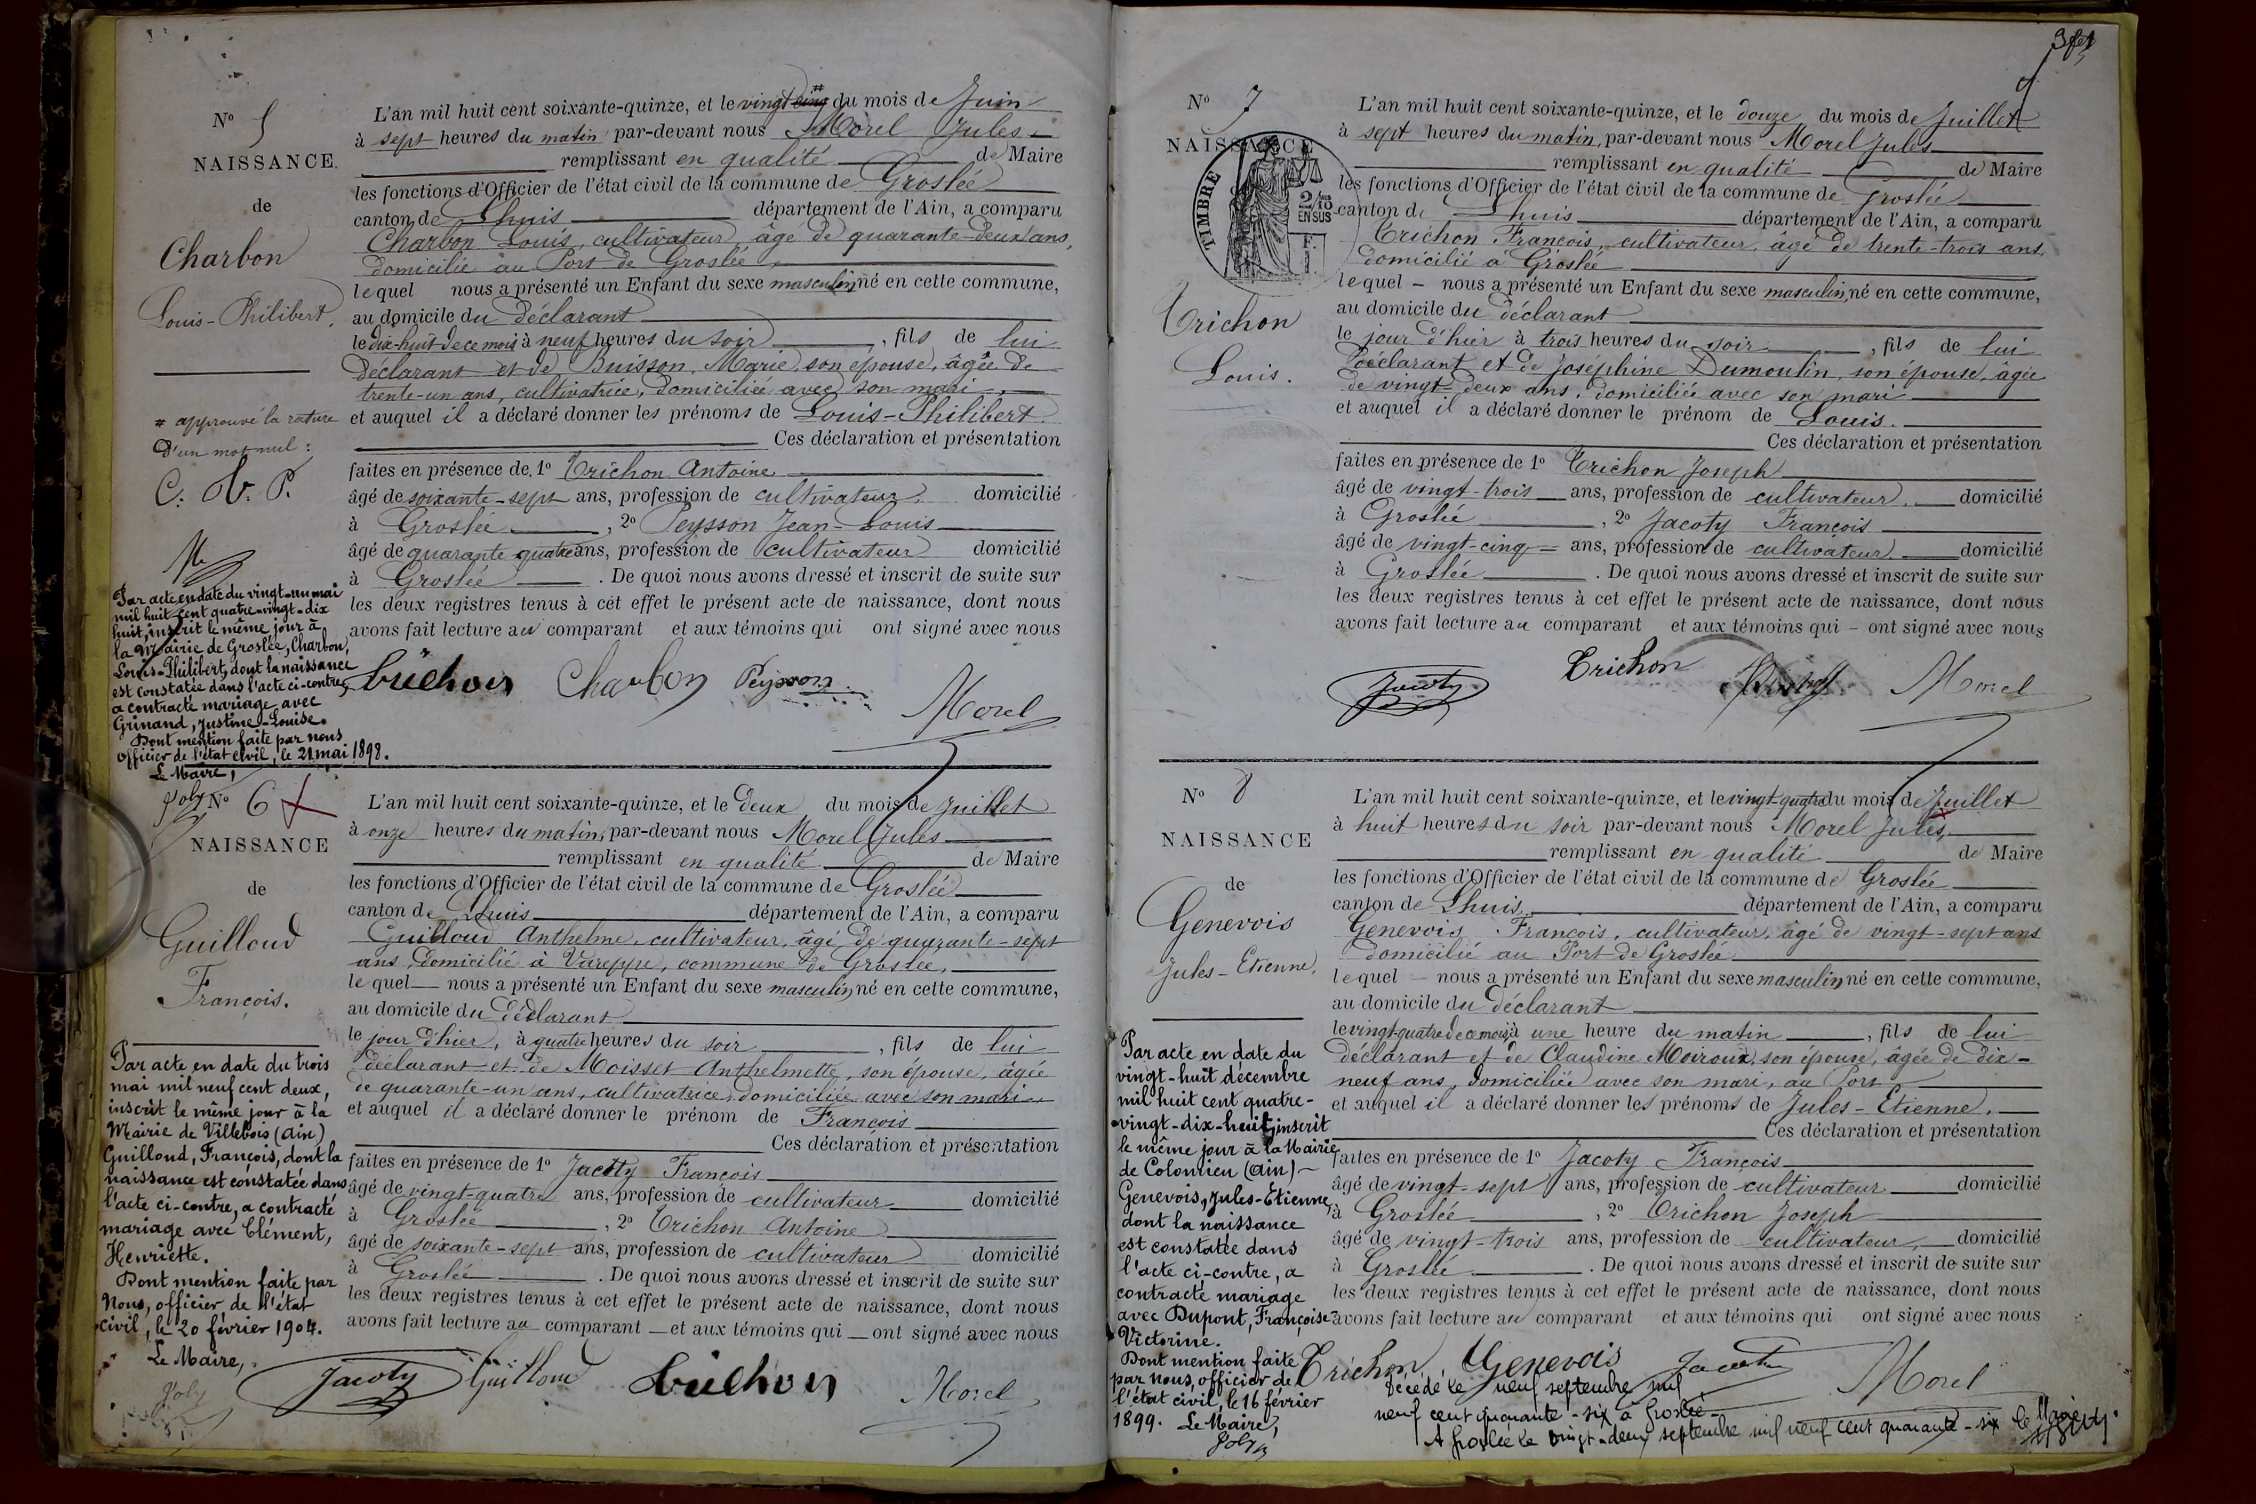 3 fet
N° 5
NAISSANCE
de
Charbon
Louis-Philibert.
# approuvé la rature
d'un mot nul :
C. T. P.
M
Par acte en date du vingt-un mai
mil huit cent quatre-vingt-dix
huit, inscrit le même jour à
la Mairie de Groslée, Charbon,
Louis-Philibert, dont la naissance
est constatée dans l'acte ci-contre,
a contracté mariage avec
Grinand, Justine-Louise.
Dont mention faite par nous
officier de l'état civil, le 21 mai 1898.
Le Maire,
Joly
L'an mil huit cent soixante-quinze, et le vingt cinq # du mois de Juin
à sept heures du matin par-devant nous Morel Jules
remplissant en qualité de Maire
les fonctions d'Officier de l'état civil de la commune de Groslée
canton de Lhuis département de l'Ain, a comparu
Charbon Louis, cultivateur âgé de quarante-deux ans,
domicilié au Port de Groslée,
lequel nous a présenté un Enfant du sexe masculin, né en cette commune,
au domicile du déclarant
le dix-huit de ce mois à neuf heures du soir, fils de lui
déclarant et de Buisson, Marie, son épouse, âgée de
trente-un ans, cultivatrice, domiciliée avec son mari
et auquel il a déclaré donner les prénoms de Louis-Philibert.
Ces déclaration et présentation
faites en présence de 1° Trichon Antoine
âgé de soixante-sept ans, profession de cultivateur, domicilié
à Groslée, 2° Peysson Jean-Louis
âgé de quarante quatre ans, profession de cultivateur domicilié
à Groslée. De quoi nous avons dressé et inscrit de suite sur
les deux registres tenus à cet effet le présent acte de naissance, dont nous
avons fait lecture au comparant et aux témoins qui ont signé avec nous
Trichon Charbon Peysson
Morel
N° 6
NAISSANCE
de
Guilloud
François.
Par acte en date du trois
mai mil neuf cent deux,
inscrit le même jour à la
Mairie de Villebois (Ain)
Guilloud, François, dont la
naissance est constatée dans
l'acte ci-contre, a contracté
mariage avec Clément,
Henriette.
Dont mention faite par
Nous, officier de l'état
civil, le 20 février 1904.
Le Maire,
Joly
L'an mil huit cent soixante-quinze, et le deux du mois de Juillet
à onze heures du matin, par-devant nous Morel Jules
remplissant en qualité de Maire
les fonctions d'Officier de l'état civil de la commune de Groslée
canton de Lhuis département de l'Ain, a comparu
Guilloud Anthelme, cultivateur, âgé de quarante-sept
ans, domicilié à Vareppe, commune de Groslée,
lequel nous a présenté un Enfant du sexe masculin, né en cette commune,
au domicile du déclarant
le jour d'hier, à quatre heures du soir, fils de lui
déclarant et de Moisset Anthelmette, son épouse, âgée
de quarante-un ans, cultivatrice, domiciliée avec son mari
et auquel il a déclaré donner le prénom de François
Ces déclaration et présentation
faites en présence de 1° Jacoty François
âgé de vingt-quatre ans, profession de cultivateur domicilié
à Groslée, 2° Trichon Antoine
âgé de soixante-sept ans, profession de cultivateur domicilié
à Groslée. De quoi nous avons dressé et inscrit de suite sur
les deux registres tenus à cet effet le présent acte de naissance, dont nous
avons fait lecture au comparant et aux témoins qui ont signé avec nous
Jacoty Guilloud Trichon Morel
N° 7
NAISSANCE
TIMBRE
2/10
EN SUS
Trichon
Louis.
L'an mil huit cent soixante-quinze, et le douze du mois de Juillet
à sept heures du matin, par-devant nous Morel Jules
remplissant en qualité de Maire
les fonctions d'Officier de l'état civil de la commune de Groslée
canton de Lhuis département de l'Ain, a comparu
Trichon François, cultivateur, âgé de trente-trois ans,
domicilié à Groslée
lequel nous a présenté un Enfant du sexe masculin, né en cette commune,
au domicile du déclarant
le jour d'hier à trois heures du soir, fils de lui
déclarant et de Joséphine Dumoulin, son épouse, âgée
de vingt-deux ans, domiciliée avec son mari
et auquel il a déclaré donner le prénom de Louis.
Ces déclaration et présentation
faites en présence de 1° Trichon Joseph
âgé de vingt-trois ans, profession de cultivateur, domicilié
à Groslée, 2° Jacoty François
âgé de vingt-cinq ans, profession de cultivateur domicilié
à Groslée. De quoi nous avons dressé et inscrit de suite sur
les deux registres tenus à cet effet le présent acte de naissance, dont nous
avons fait lecture au comparant et aux témoins qui ont signé avec nous
Jacoty Trichon Morel
N° 8
NAISSANCE
de
Genevois
Jules-Etienne.
Par acte en date du
vingt-huit décembre
mil huit cent quatre-
vingt-dix-huit, inscrit
le même jour à la Mairie
de Colomieu (Ain)
Genevois, Jules-Etienne,
dont la naissance
est constatée dans
l'acte ci-contre, a
contracté mariage
avec Dupont, Françoise-
Victorine.
Dont mention faite
par nous, officier de
l'état civil, le 16 février
1899. Le Maire,
Joly
L'an mil huit cent soixante-quinze, et le vingt-quatre du mois de Juillet
à huit heures du soir par-devant nous Morel Jules,
remplissant en qualité de Maire
les fonctions d'Officier de l'état civil de la commune de Groslée
canton de Lhuis département de l'Ain, a comparu
Genevois François, cultivateur, âgé de vingt-sept ans
domicilié au Port de Groslée
lequel nous a présenté un Enfant du sexe masculin, né en cette commune,
au domicile du déclarant
le vingt-quatre de ce mois, à une heure du matin, fils de lui
déclarant et de Claudine Moiroux, son épouse, âgée de dix-
neuf ans, domiciliée avec son mari, au Port
et auquel il a déclaré donner les prénoms de Jules-Etienne.
Ces déclaration et présentation
faites en présence de 1° Jacoty François
âgé de vingt-sept ans, profession de cultivateur domicilié
à Groslée, 2° Trichon Joseph
âgé de vingt-trois ans, profession de cultivateur, domicilié
à Groslée. De quoi nous avons dressé et inscrit de suite sur
les deux registres tenus à cet effet le présent acte de naissance, dont nous
avons fait lecture au comparant et aux témoins qui ont signé avec nous
Trichon Genevois Jacoty Morel
Décédé le neuf septembre mil
neuf cent quarante-six à Groslée
A Groslée le vingt-deux septembre mil neuf cent quarante-six le Maire